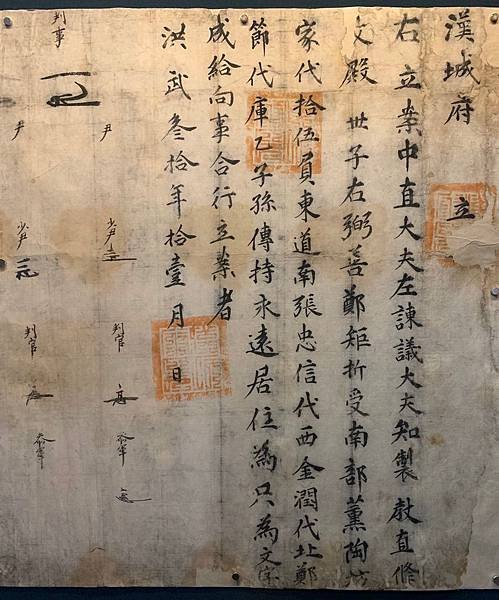 漢城府 立
右立案中直大夫左諫議大夫知製敎直修
文殿 世子右弼善鄭矩折受南部薰陶坊
家代拾伍負東道南張忠信代西金潤代北鄭
節代庫乙子孫傳持永遠居住為只為文字
成給向事合行立案者
洪武叁拾年拾壹月 日
尹 少尹 判官 參軍
判事
尹 少尹 判官 參軍